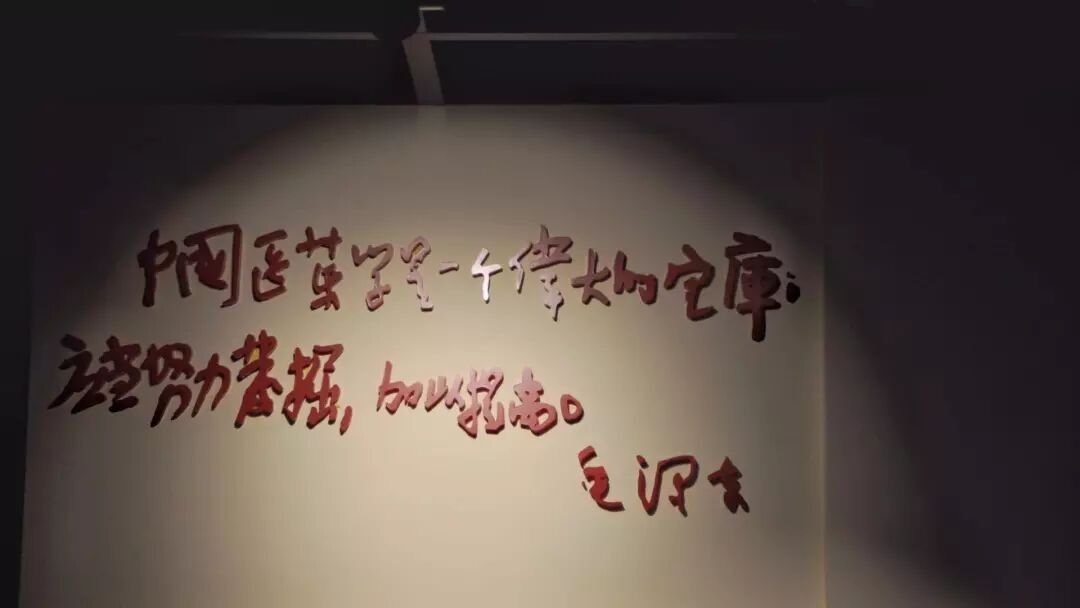 中国医药学是一个偉大的宝庫；
应当努力发掘，加以提高。
毛泽东